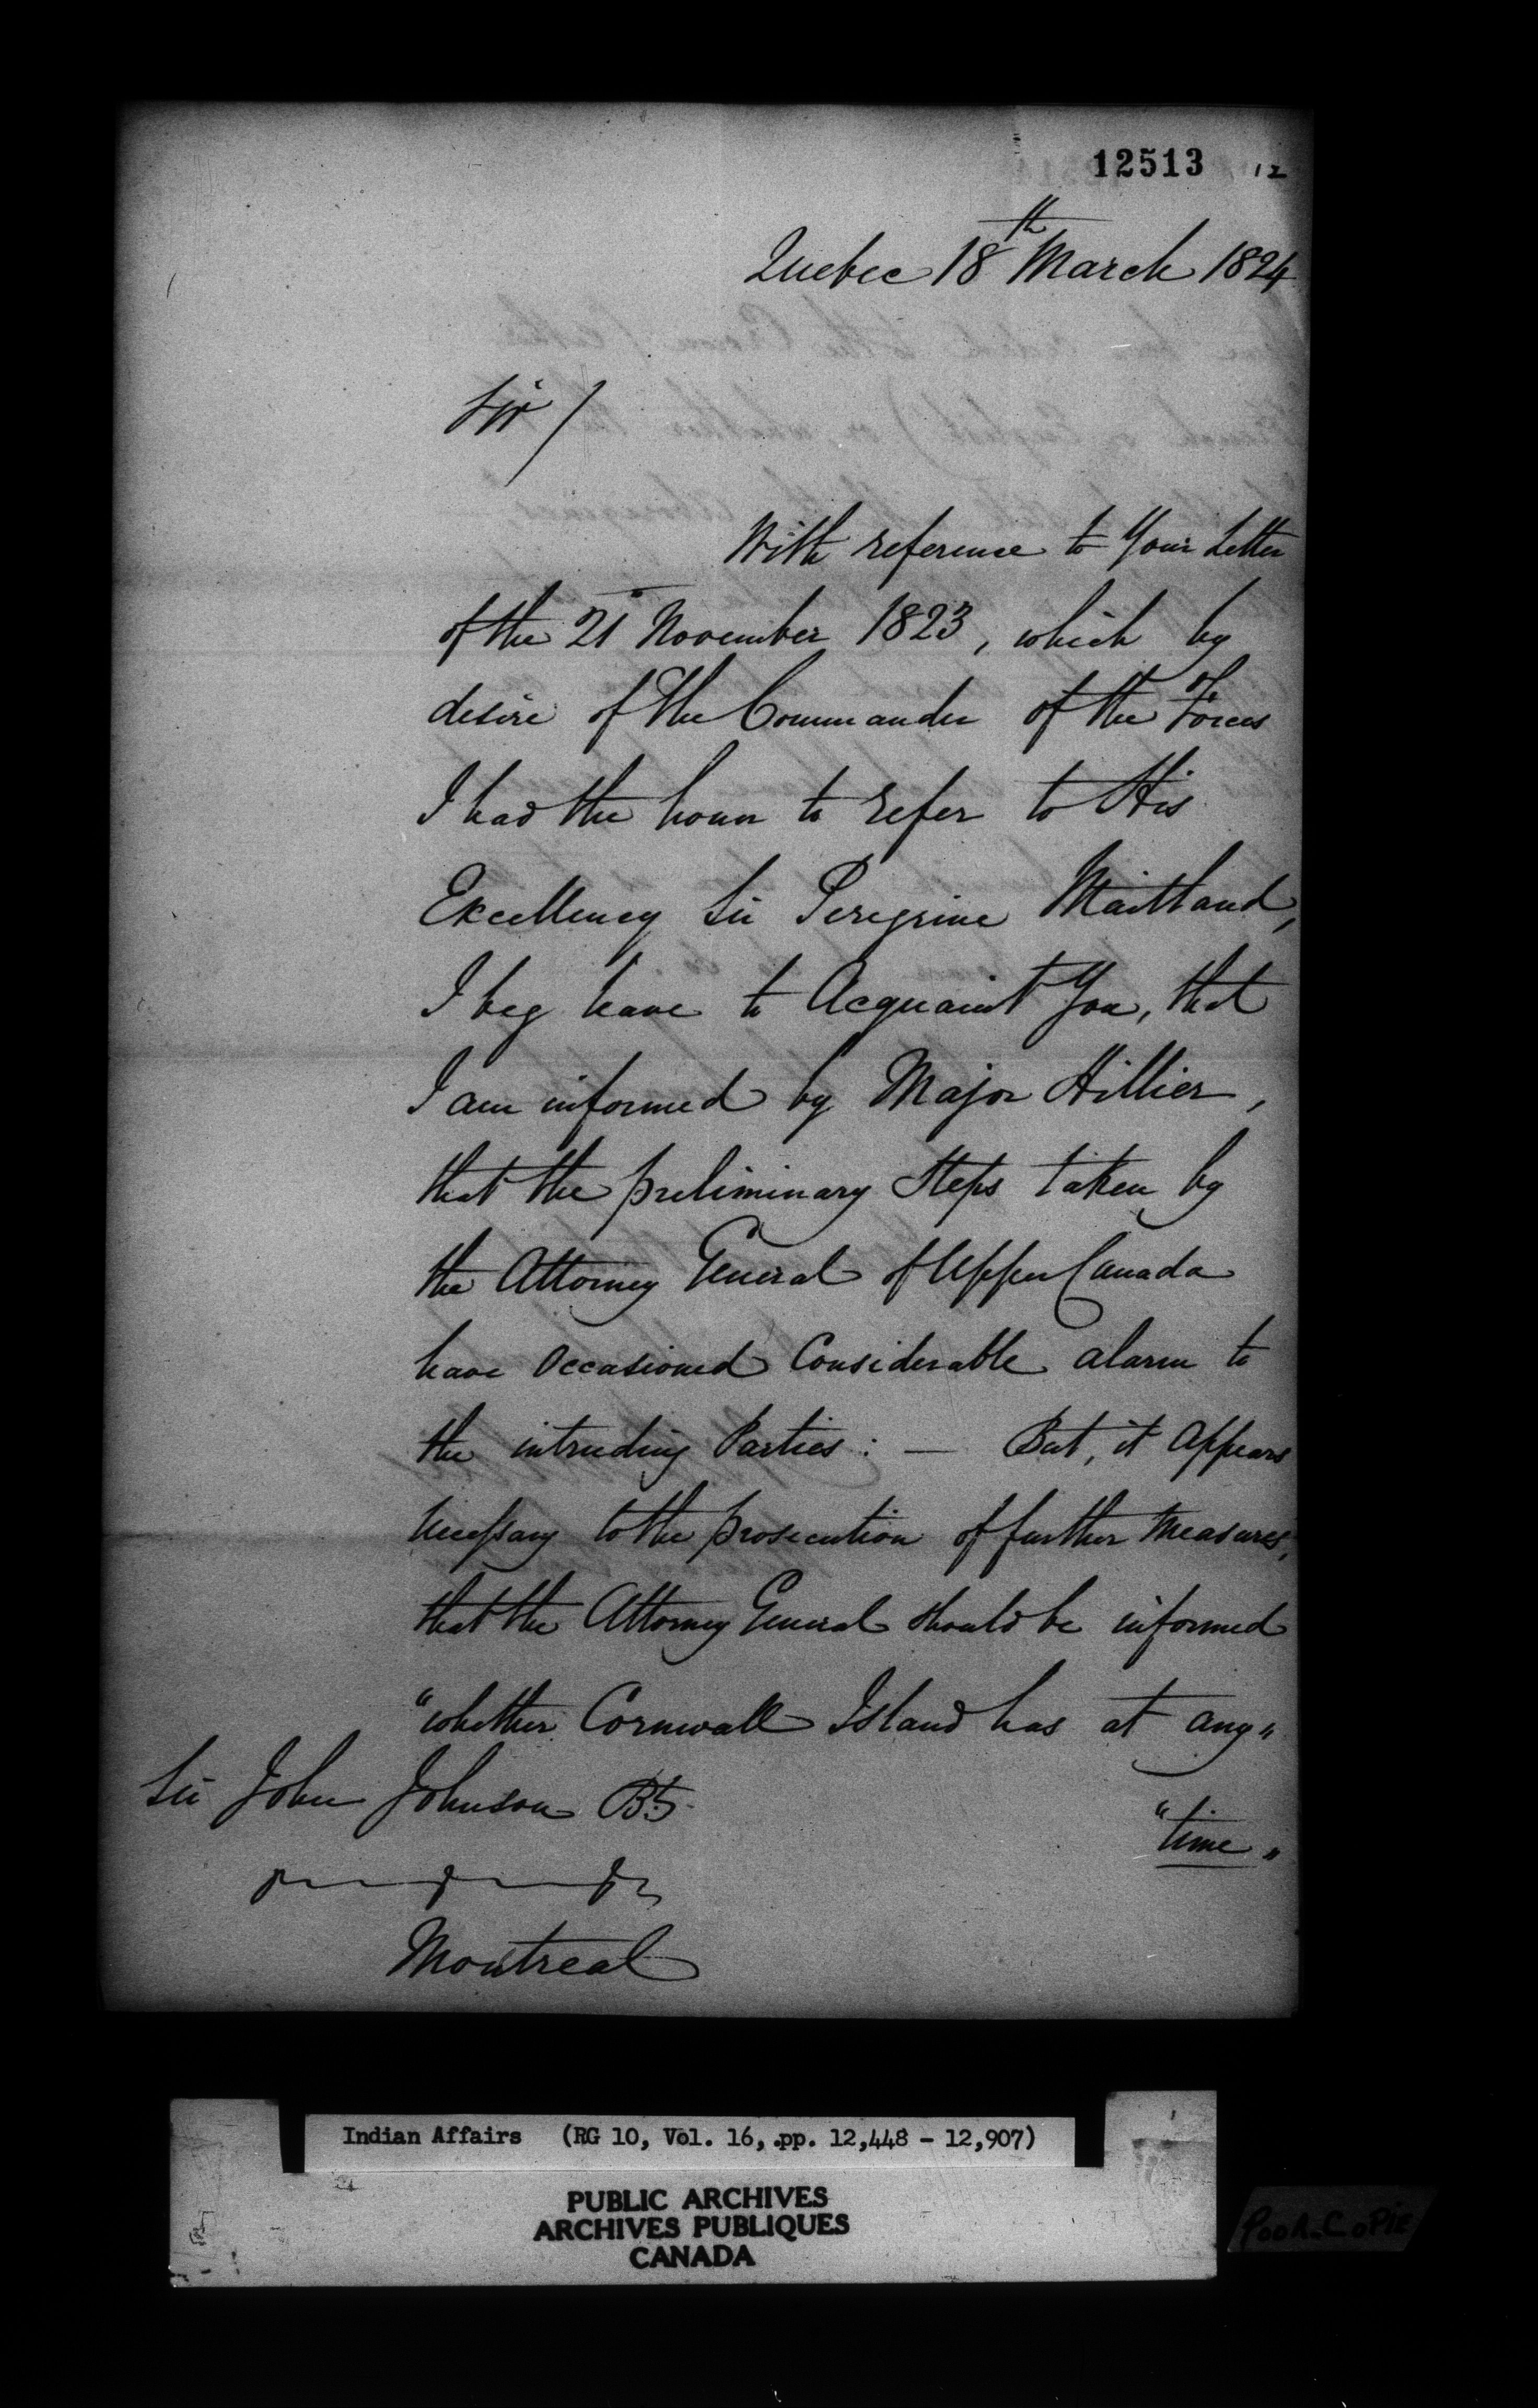 12513 12
Quebec 18th March 1824
Sir/
With reference to Your Letter
of the 21 November 1823, which by
desire of the Commander of the Forces
I had the honor to refer to His
Excellency Sir Peregrine Maitland,
I beg leave to Acquaint You, that
I am informed by Major Hillier,
that the preliminary Steps taken by
the Attorney General of Upper Canada
have Occasioned Considerable alarm to
the intruding Parties: — But, it Appears
necessary to the prosecution of further Measures,
that the Attorney General should be informed
"whether Cornwall Island has at any"
Sir John Johnson Bt
"time"
Montreal
Indian Affairs (RG 10, Vol. 16, pp. 12,448 - 12,907)
PUBLIC ARCHIVES
ARCHIVES PUBLIQUES
CANADA
POOR COPIE